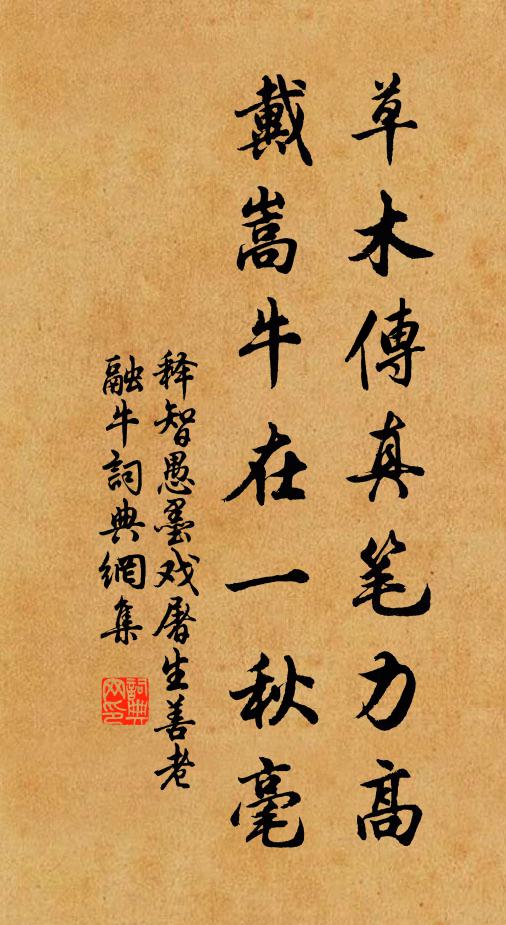 草木傳真笔力高
戴嵩牛在一秋毫
释智愚墨戏屠生善老
融牛詞典網集
詞典网印